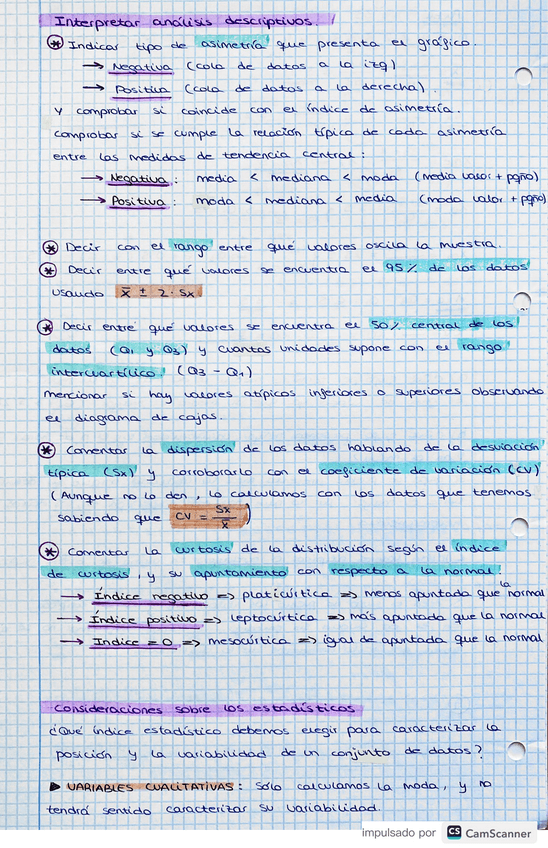 Interpretar análisis descriptivos.
* Indicar tipo de asimetría que presenta el gráfico.
→ Negativa (cola de datos a la izq)
→ Positiva (cola de datos a la derecha).
Y comprobar si coincide con el índice de asimetría.
Comprobar si se cumple la relación típica de cada asimetría
entre las medidas de tendencia central:
→ Negativa: media < mediana < moda (media valor + pqño)
→ Positiva: moda < mediana < media (moda valor + pqño)
* Decir con el rango entre qué valores oscila la muestra.
* Decir entre qué valores se encuentra el 95% de los datos
usando x̄ ± 2·Sx
* Decir entre qué valores se encuentra el 50% central de los
datos (Q1 y Q3) y cuantas unidades supone con el rango
intercuartílico. (Q3 - Q1)
mencionar si hay valores atípicos inferiores o superiores observando
el diagrama de cajas.
* Comentar la dispersión de los datos hablando de la desviación
típica (Sx) y corroborarlo con el coeficiente de variación (CV)
(Aunque no lo den, lo calculamos con los datos que tenemos
sabiendo que CV = Sx/x̄)
* Comentar la curtosis de la distribución según el índice
de curtosis, y su apuntamiento con respecto a la normal:
→ Índice negativo => platicúrtica => menos apuntada que la normal
→ Índice positivo => leptocúrtica => más apuntada que la normal
→ Indice = 0 => mesocúrtica => igal de apuntada que la normal
Consideraciones sobre los estadísticos
¿Qué índice estadístico debemos elegir para caracterizar la
posición y la variabilidad de un conjunto de datos?
▶ VARIABLES CUALITATIVAS: Sólo calculamos la moda, y no
tendrá sentido caracterizar su variabilidad.
impulsado por CS CamScanner